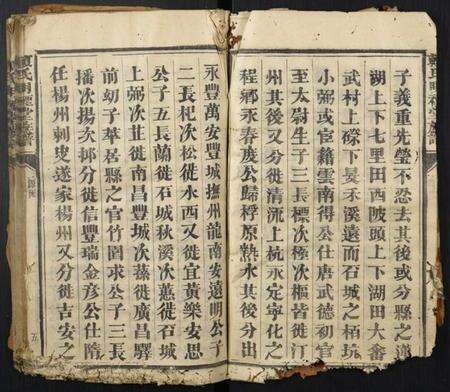 子義重先塋不忍去其後或分縣之
湖上下七里田西陂頭上下湖田大畬
武村上磜下晏禾溪遠而石城之栢坑
小弼或宦籍雲南得公仕唐武德初官
至太尉生子三長標次極次樞皆徙汀
州其後又分徙清流上杭永定寧化之
程鄉永春慶公歸桴原熱永其後分出
永豐萬安豐城撫州龍南安遠明公子
二長杞次松徙水西又徙宜黃樂安思
公子五長蘭徙石城秋溪次蕙徙石城
上弼次苷徙南昌豐城次蓀徙廣昌驛
前幼子莘居縣之官竹園求公子三長
播次揚次㧣分徙信豐瑞金彥公仕隋
任楊州刺史遂家楊州又分徙吉安之
五